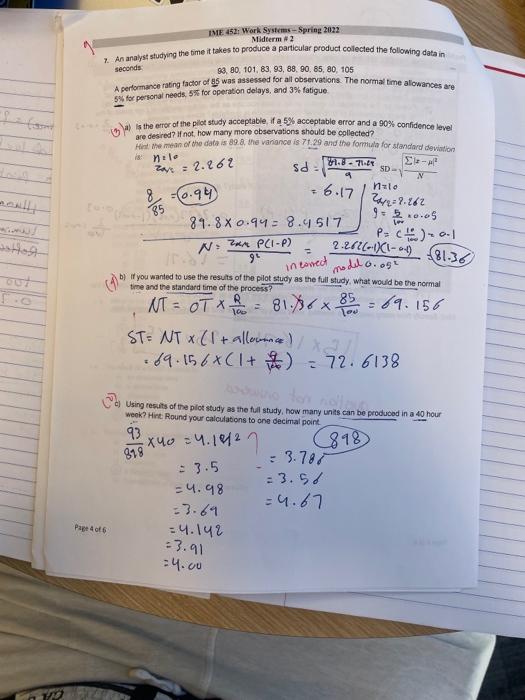 9
IME 452: Work Systems – Spring 2022
Midterm # 2
7. An analyst studying the time it takes to produce a particular product collected the following data in
seconds:
93, 80, 101, 83, 93, 88, 90, 85, 80, 105
A performance rating factor of 85 was assessed for all observations. The normal time allowances are
5% for personal needs, 5% for operation delays, and 3% fatigue.
a) Is the error of the pilot study acceptable, if a 5% acceptable error and a 90% confidence level
are desired? If not, how many more observations should be collected?
Hint: the mean of the data is 89.8, the variance is 71.29 and the formula for standard deviation
is:
n=10
= 2.262
sd =
SD =
= 6.17
n=10
= 2.262
8/85 = 0.94
89.8 x 0.94 = 8.4517
P = (10/100) = 0.1
= 81.36
incorrect model
b) If you wanted to use the results of the pilot study as the full study, what would be the normal
time and the standard time of the process?
NT = OT x R/100 = 81.36 x 85/100 = 69.156
ST = NT x (1 + allowance)
= 69.156 x (1 + ) = 72.6138
c) Using results of the pilot study as the full study, how many units can be produced in a 40 hour
week? Hint: Round your calculations to one decimal point.
93/898 x 40 = 4.1842 ?
898
= 3.5
= 4.98
= 3.69
= 4.142
= 3.91
= 4.00
= 3.56
= 4.67
Page 4 of 6